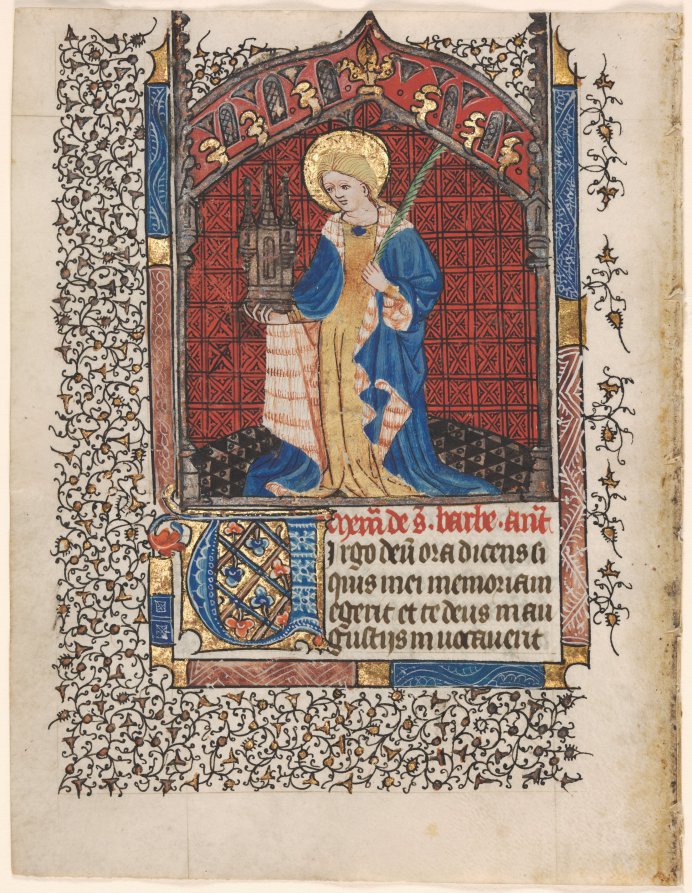 de s̃. barbe. añt
Virgo deũ ora dicens si
quis mei memoriam
egerit et te deus in an
gustijs inuocauerit